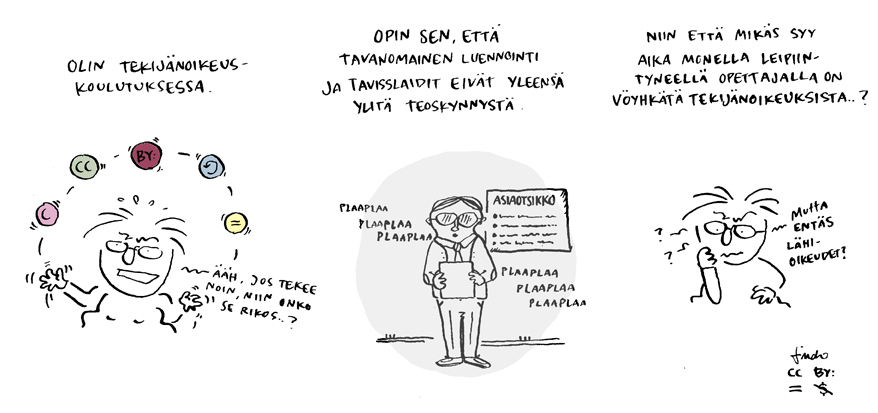 OLIN TEKIJÄNOIKEUS-
KOULUTUKSESSA.
C
CC
BY:
=
ÄÄH, JOS TEKEE
NOIN, NIIN ONKO
SE RIKOS..?
OPIN SEN, ETTÄ
TAVANOMAINEN LUENNOINTI
JA TAVISSLAIDIT EIVÄT YLEENSÄ
YLITÄ TEOSKYNNYSTÄ.
PLAAPLAA
PLAAPLAA
PLAAPLAA
ASIAOTSIKKO
PLAAPLAA
PLAAPLAA
PLAAPLAA
NIIN ETTÄ MIKÄS SYY
AIKA MONELLA LEIPIIN-
TYNEELLÄ OPETTAJALLA ON
VÖYHKÄTÄ TEKIJÄNOIKEUKSISTA..?
? ?
MUTTA
ENTÄS
LÄHI-
OIKEUDET?
CC BY:
= $